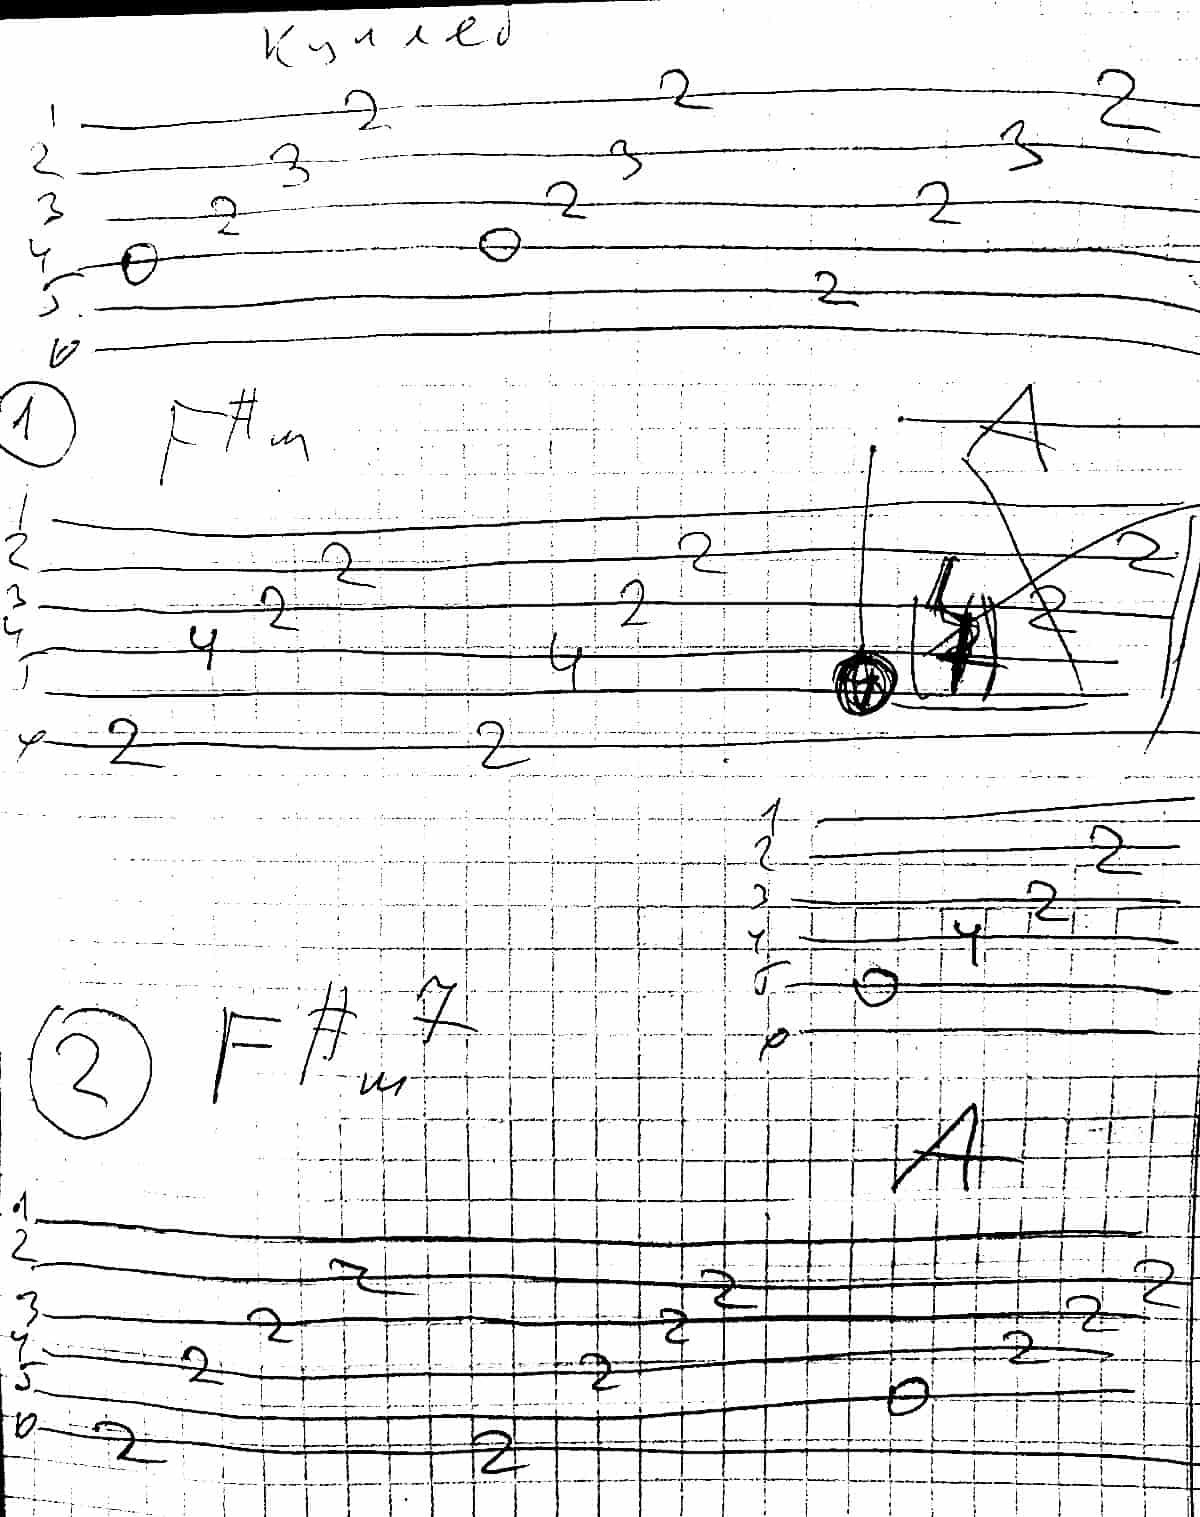 Куплед
1 2 2 2
2 3 3 3
3 2 2 2
4 0 0
5 2
6
1 F#m A
1
2 2 2 2
3 2 2 2
4 4 4
5
6 2 2
1
2 2
3 2
4 4
5 0
6
2 F#m7
A
1
2 2 2 2
3 2 2 2
4 2 2 2
5 0
6 2 2